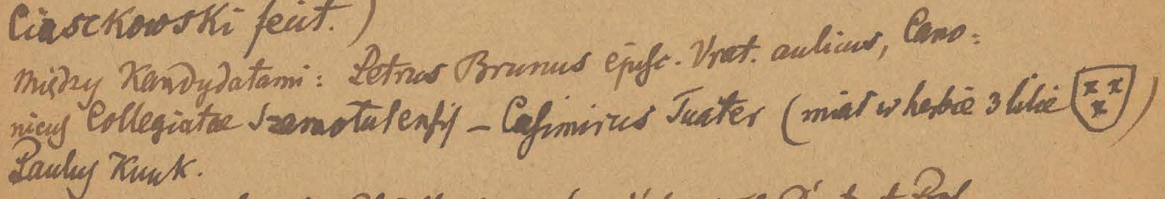 Ciasckowski fecit.)
Między Kandydatami: Petrus Brunus episc. Vrat. aulicus, Cano=
nicus Collegiatae Szamotulensis – Casimirus Tuater (miał w herbie 3 lilie)
Paulus Kunk.